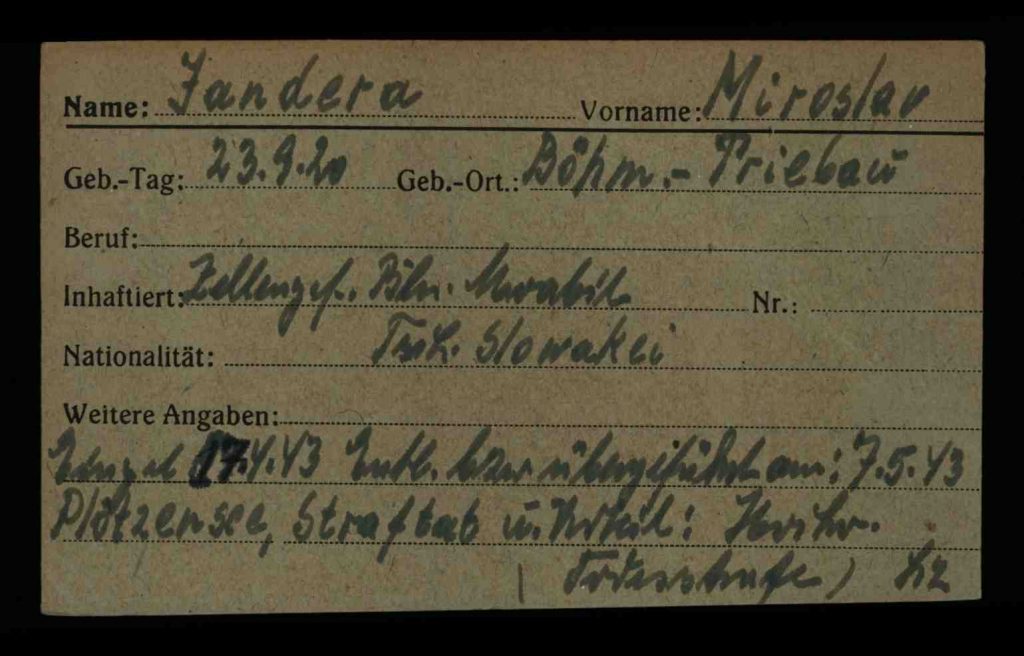 Name: Jandera Vorname: Miroslav
Geb.-Tag: 23.9.20 Geb.-Ort.: Böhm.- Priebau
Beruf:
Inhaftiert: Zellengef. Bln. Moabit Nr.:
Nationalität: Tsch. Slowakei
Weitere Angaben:
17.4.43 Entl. bzw. übergeführt am: 7.5.43
Plötzensee, Straftat u. Urteil:
( Todesstrafe )